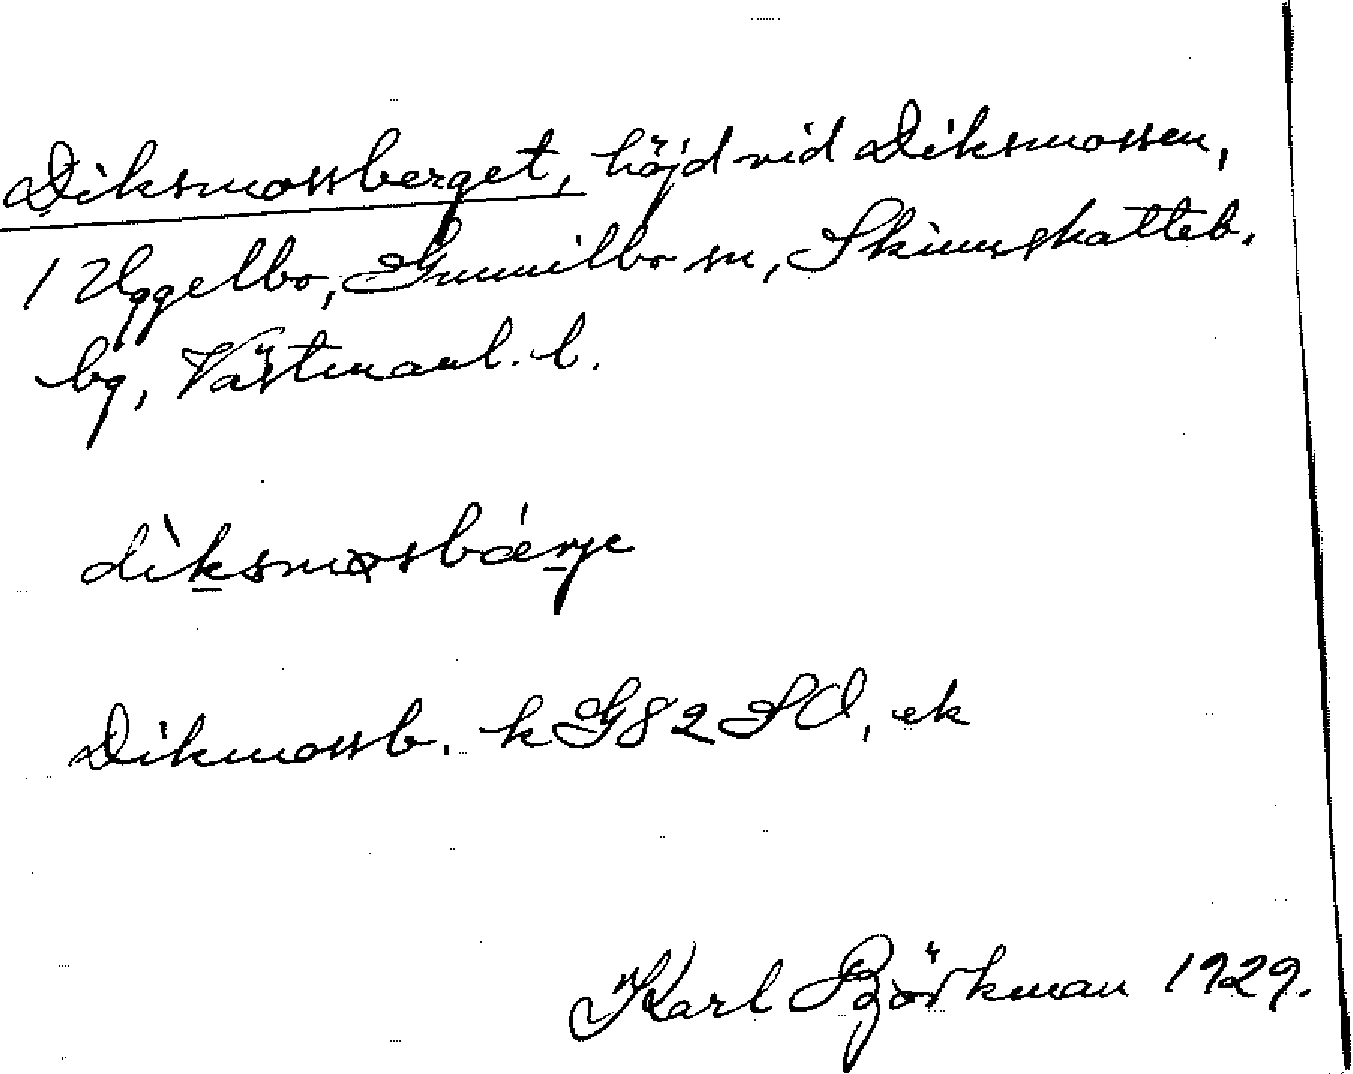 Diksmossberget, höjd vid Diksmossen,
1 Uggelbo, Gunnilbo sn, Skinnskatteb.
bg, Västmanl. l.
dìksmosbǽrje
Dikmossb. k G82 SO, ek
Karl Björkman 1929.